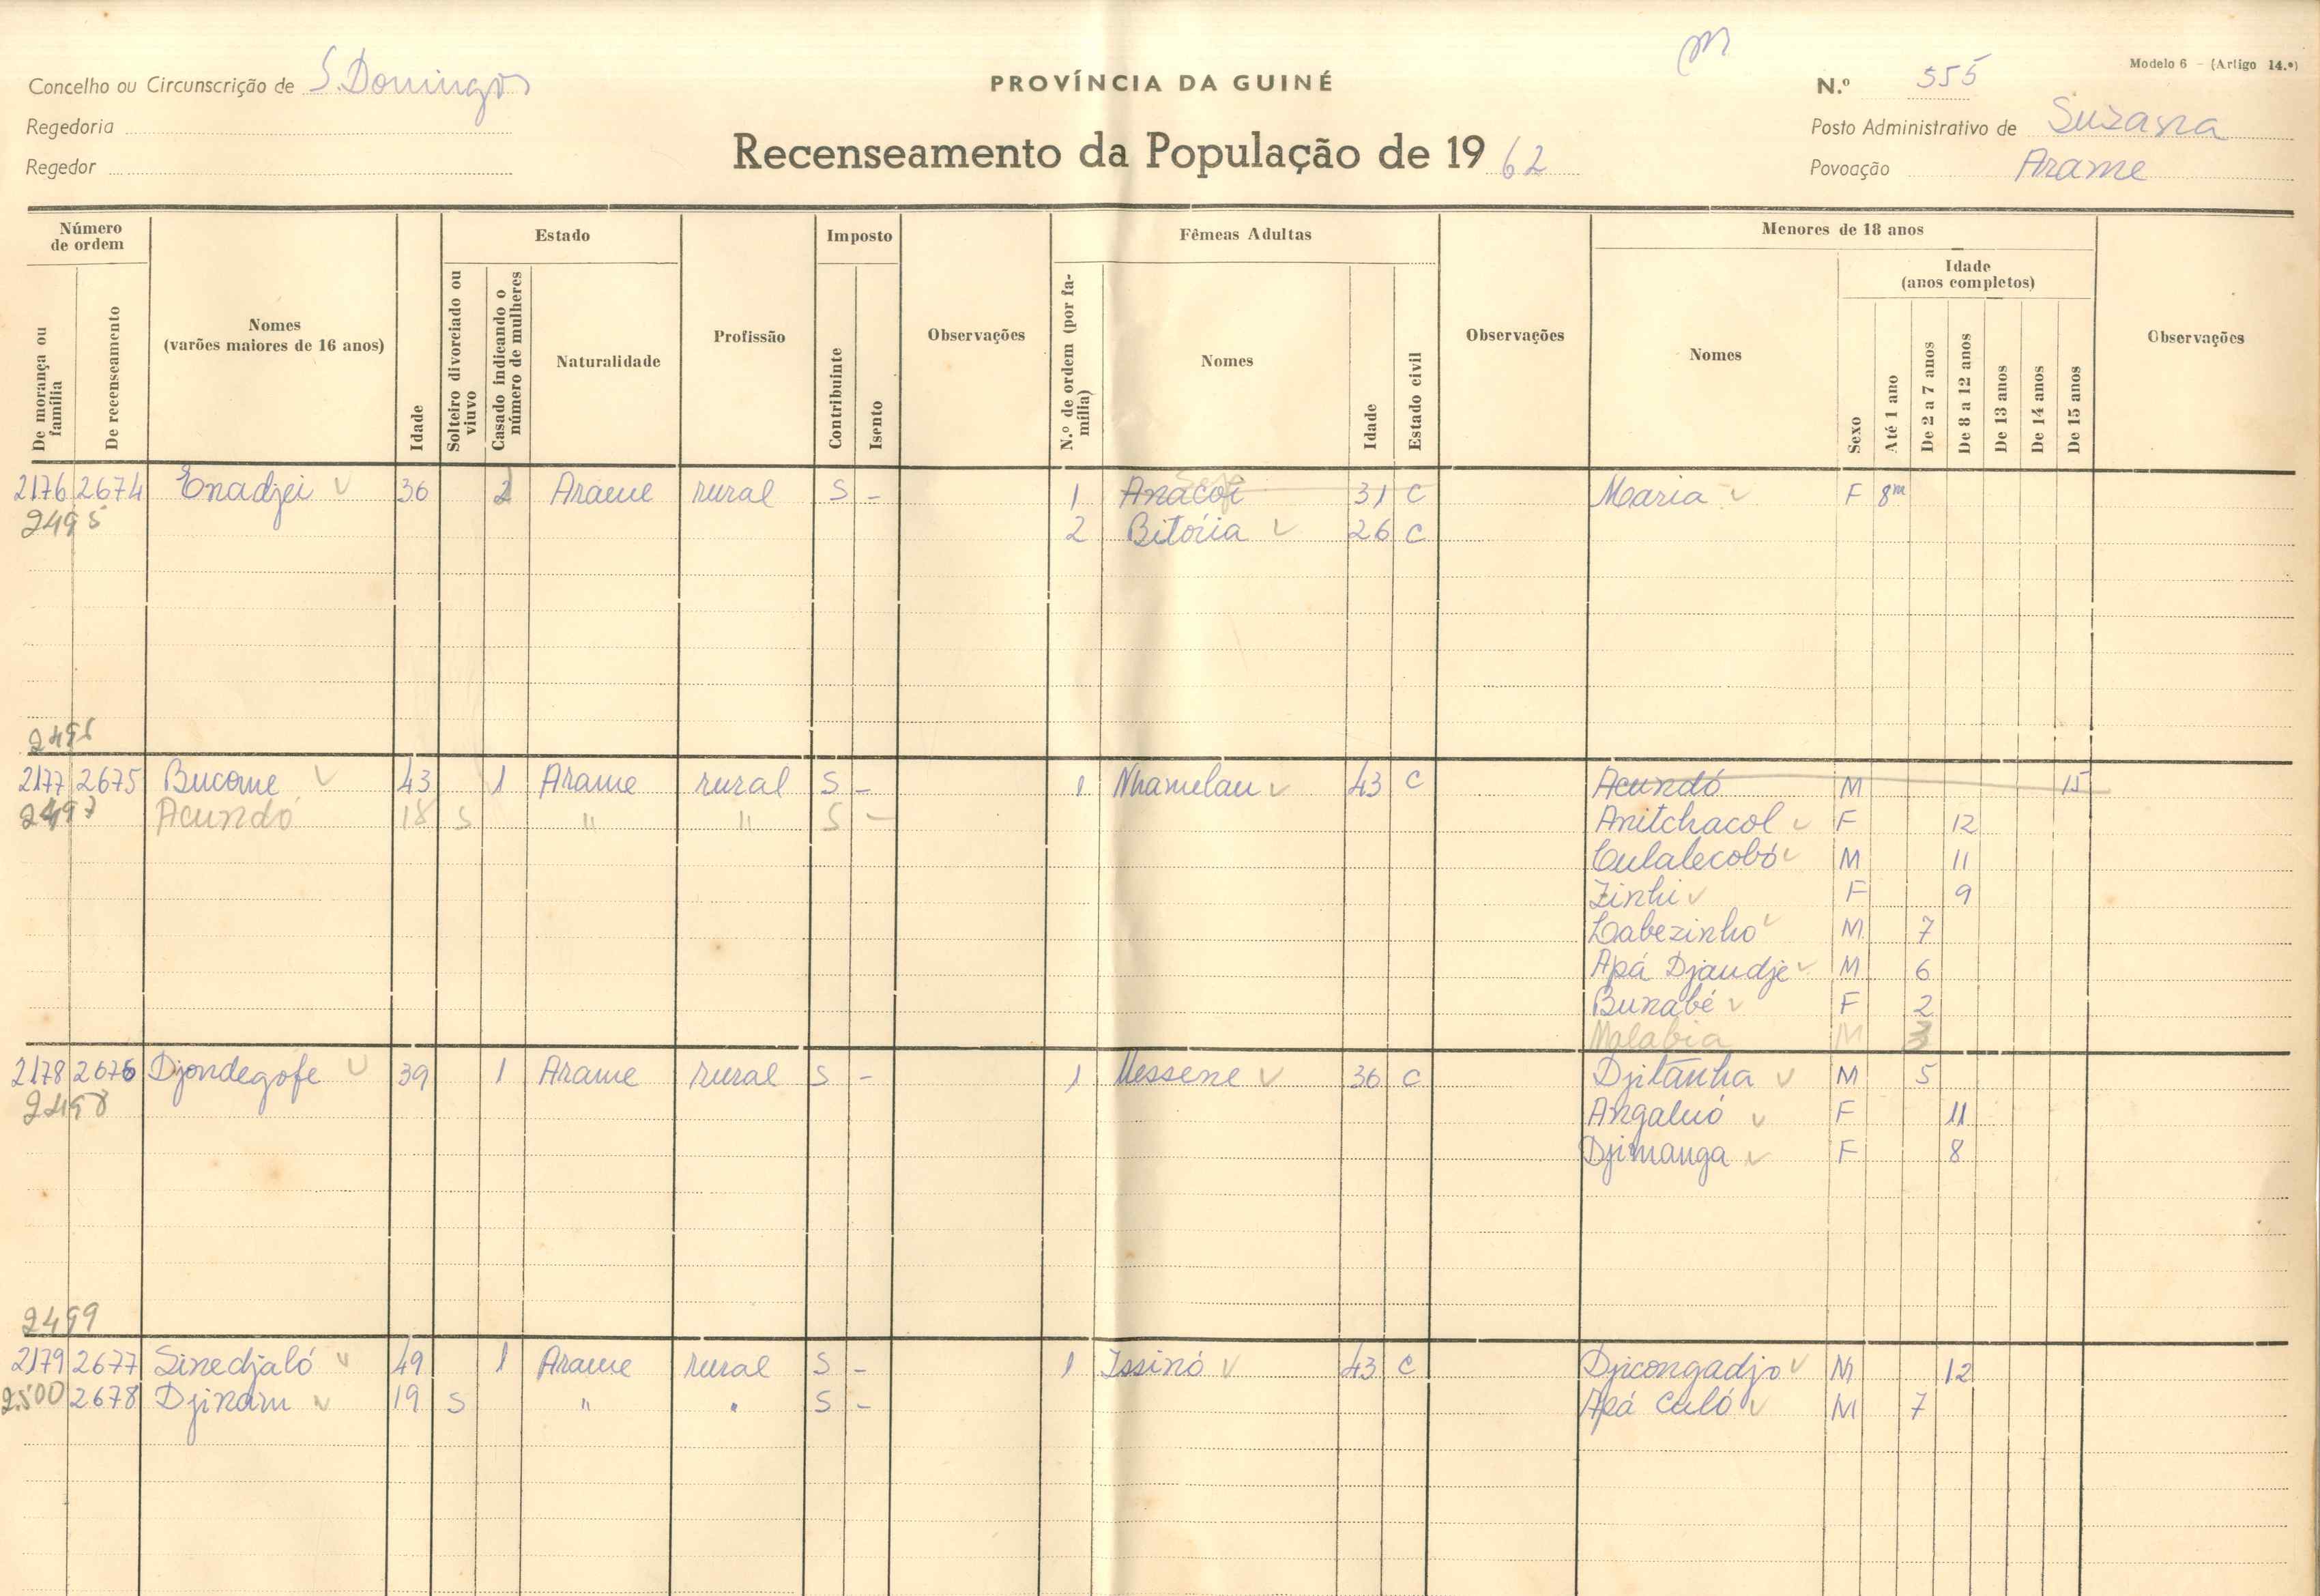 Modelo 6 - (Artigo 14.º)
Concelho ou Circunscrição de S. Domingos
PROVÍNCIA DA GUINÉ
N.º 555
Regedoria
Recenseamento da População de 1962
Posto Administrativo de Suzana
Regedor
Povoação Arame
Número de ordem
De morança ou família
De recenseamento
Nomes
(varões maiores de 16 anos)
Idade
Estado
Solteiro divorciado ou viuvo
Casado indicando o número de mulheres
Naturalidade
Profissão
Imposto
Contribuinte
Isento
Observações
Fêmeas Adultas
N.º de ordem (por família)
Nomes
Idade
Estado civil
Observações
Menores de 18 anos
Nomes
Sexo
Idade
(anos completos)
Até 1 ano
De 2 a 7 anos
De 8 a 12 anos
De 13 anos
De 14 anos
De 15 anos
Observações
2176 2674 Enadjei 36 2 Arame rural S - 1 Anacoi 31 C Maria F 8m
2495 2 Bitória 26 C
2177 2675 Bucome 43 1 Arame rural S - 1 Nhamelau 43 C Acundó M 15
2497 Acundó 18 S " " S - Anitchacol F 12
Culalecobó M 11
Zinhi F 9
Labezinho M 7
Apá Djaudje M 6
Bunabé F 2
Malabia M
2178 2676 Djondegofe 39 1 Arame rural S - 1 Messene 36 C Djitanha M 5
2498 Angaluó F 11
Djimanga F 8
2499
2179 2677 Sinedjaló 49 1 Arame rural S - 1 Issinó 43 C Djicongadjo M 12
2500 2678 Djinam 19 S " " S - Apá Caló M 7